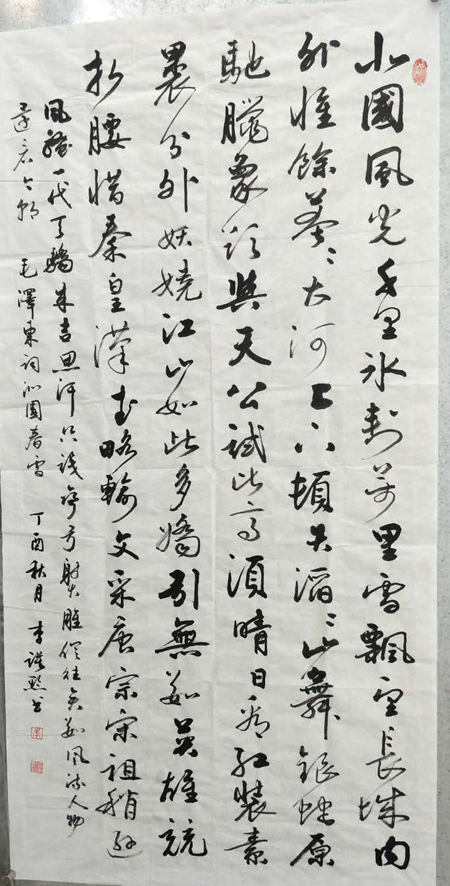 北國風光千里冰封萬里雪飄望長城内
外惟餘莽々大河上下頓失滔々山舞銀蛇原
馳臘象欲與天公試比高須晴日看紅裝素
裹分外妖嬈江山如此多嬌引無數英雄競
折腰惜秦皇漢武略輸文采唐宗宋祖稍遜
風騷一代天驕成吉思汗只識彎弓射大雕俱往矣數風流人物
還看今朝 毛澤東詞沁園春雪 丁酉秋月 李